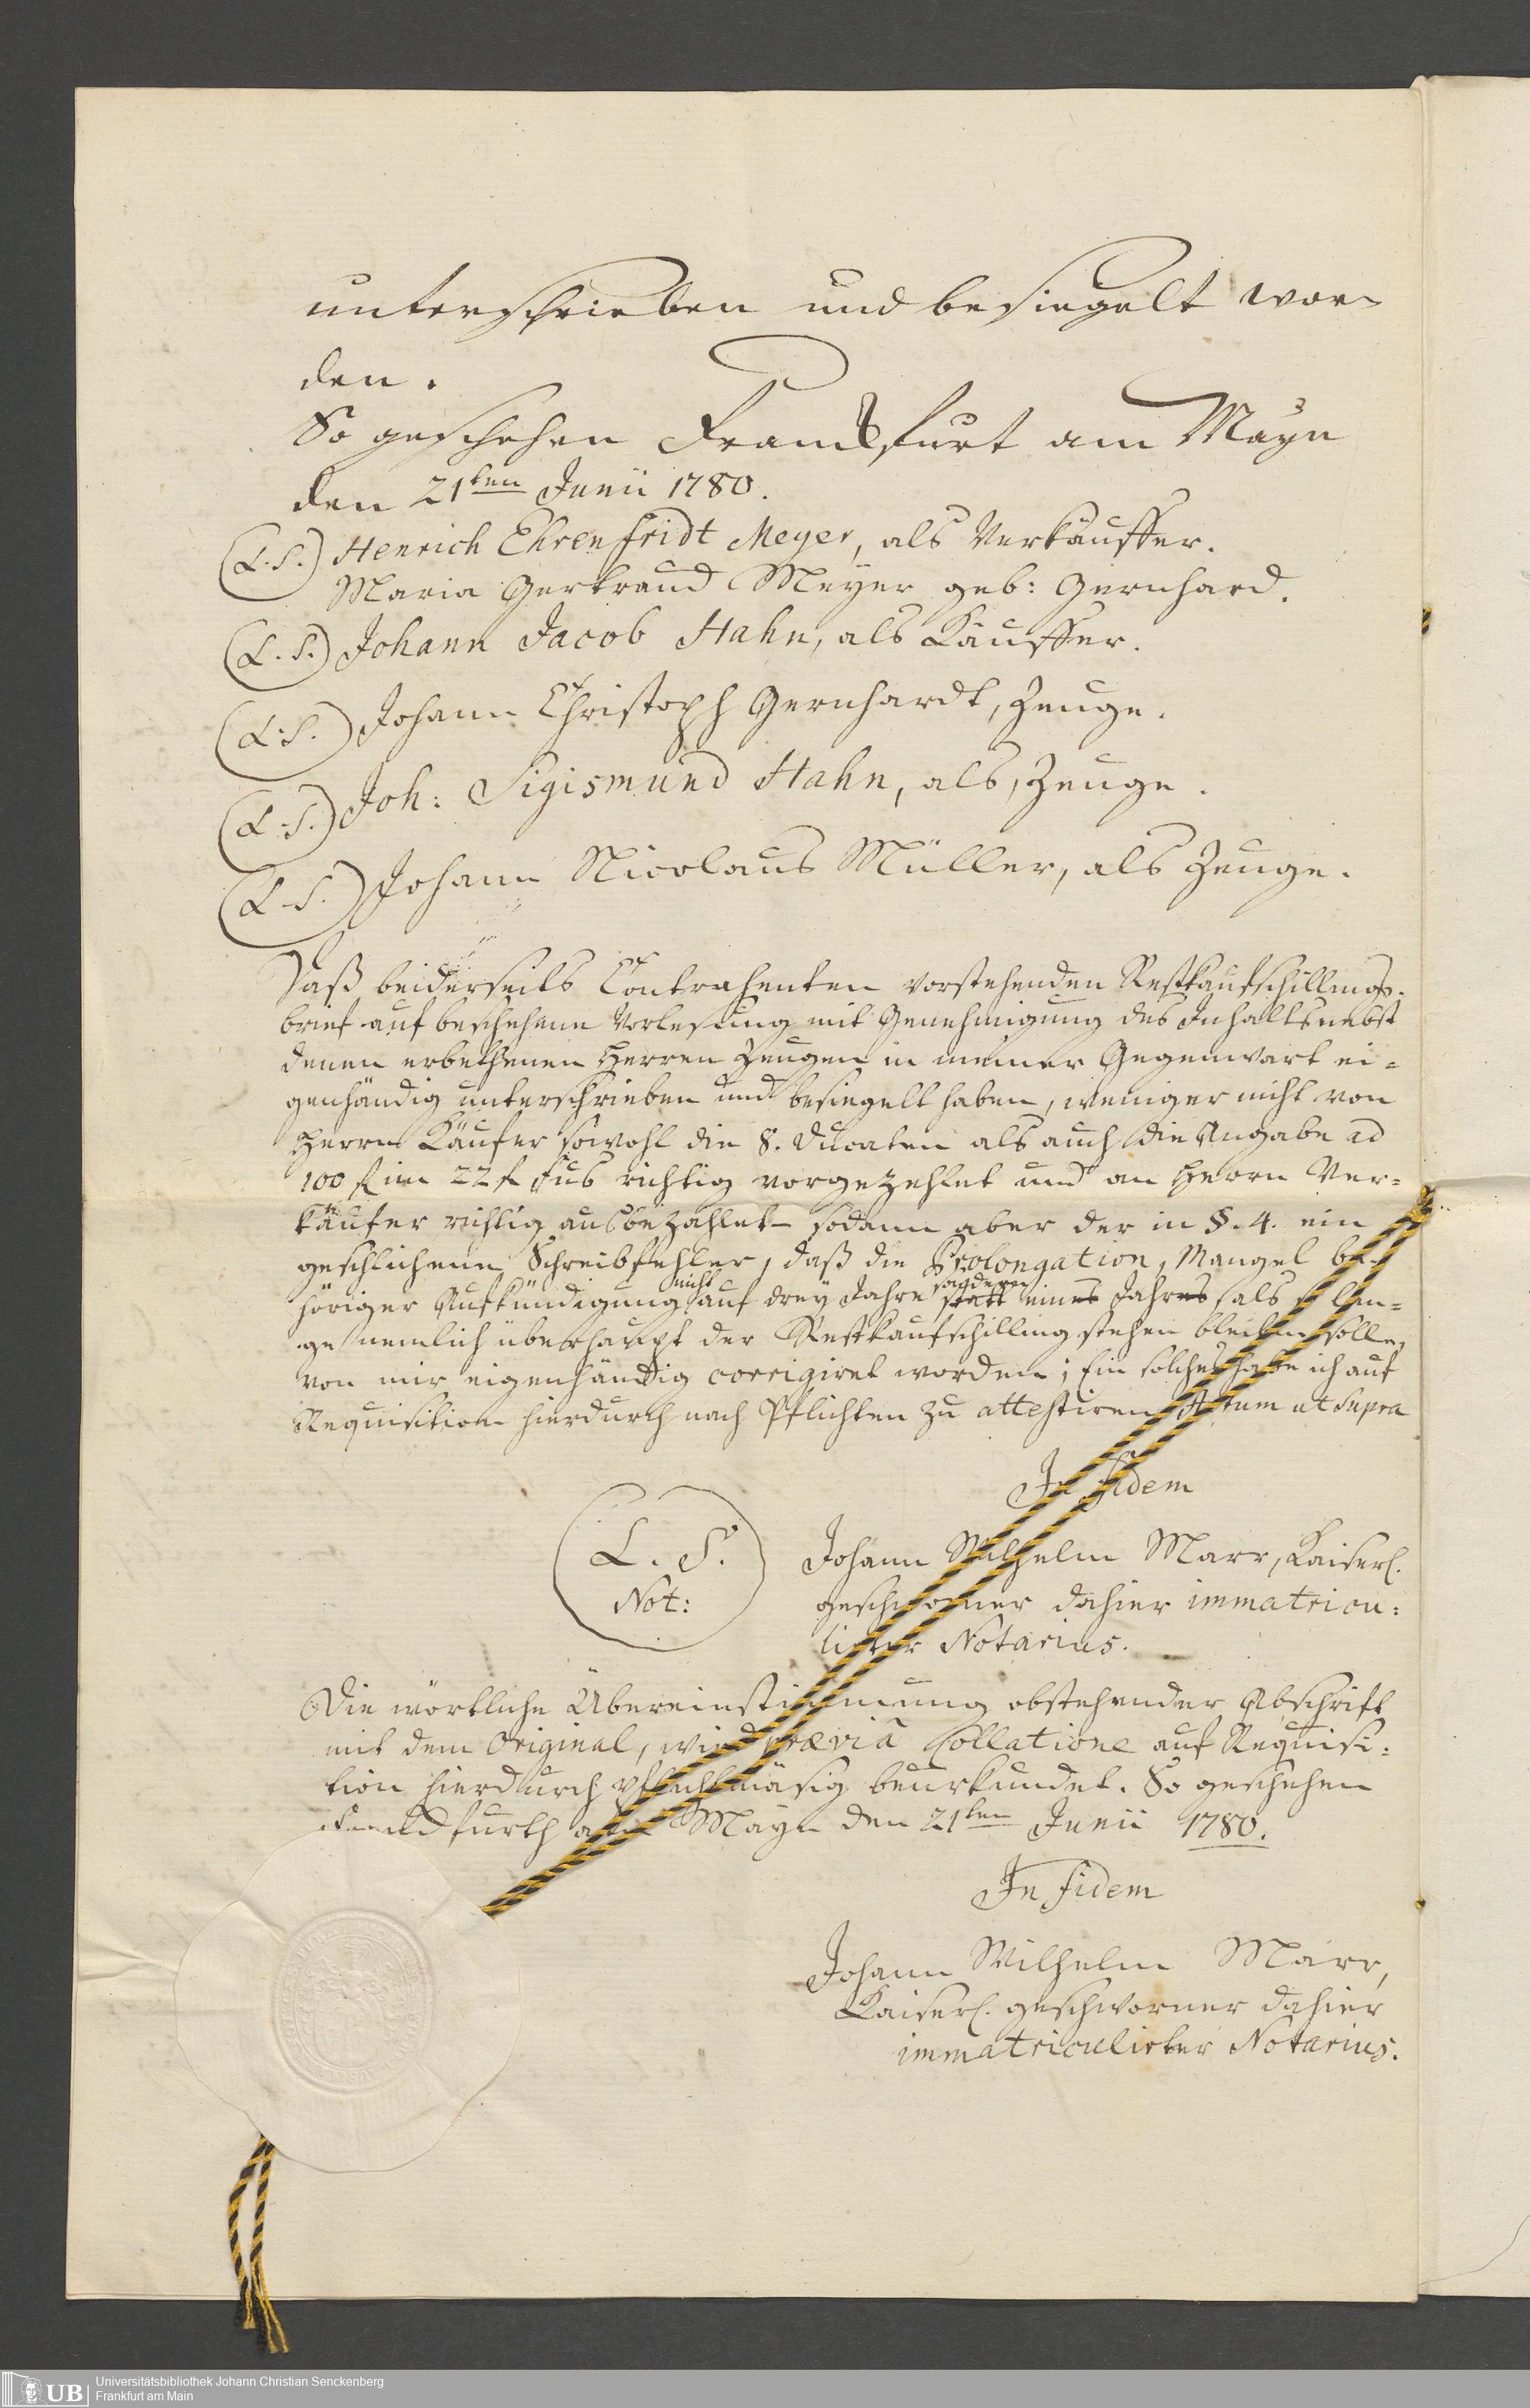 unterschrieben und besiegelt wor-
den.
So geschehen Franckfurt am Mayn
den 21ten Junii 1780.
(L.S.) Henrich Ehrenfridt Meyer, als Verkäuffer.
Maria Gertraud Meyer geb: Gernhard.
(L.S.) Johann Jacob Hahn, als Käuffer.
(L.S.) Johann Christoph Gernhardt, Zeuge.
(L.S.) Joh: Sigismund Hahn, als Zeuge.
(L.S.) Johann Nicolaus Müller, als Zeuge.
Daß beiderseits Contrahenten vorstehenden Restkaufschillings-
brief auf beschehene Vorlesung mit Genehmigung des Inhalts nebst
denen erbethenen Herren Zeugen in meiner Gegenwart ei-
genhändig unterschrieben und besiegelt haben, weniger nicht von
Herrn Käufer sowohl die 8. Ducaten als auch die Angabe ad
100 f im 22 f Fus richtig vorgezehlet und an Herrn Ver-
käufer richtig ausbezahlet sodann aber der in §. 4. ein
geschlichene Schreibfehler, daß die Prolongation, Mangel be-
höriger Aufkündigung nicht auf drey Jahre sondern statt eines Jahres, als so lan-
ge nemlich überhaupt der Restkaufschilling stehen bleiben solle,
von mir eigenhändig corrigiret worden; Ein solches habe ich auf
Requisition hierdurch nach Pflichten zu attestiren. Actum ut supra
In fidem
L. S. Johann Wilhelm Marx, Kaiserl.
Not: geschworner dahier immatricu:
lirter Notarius.
Die wörtliche Übereinstimmung obstehender Abschrift
mit dem Original, wird praeviâ Collatione auf Requisi:
tion hierdurch pflichtmäsig beurkundet. So geschehen
Franckfurth am Mayn den 21ten Junii 1780.
In fidem
Johann Wilhelm Marx,
Kaiserl. geschworner dahier
immatriculirter Notarius.
UB Universitätsbibliothek Johann Christian Senckenberg
Frankfurt am Main